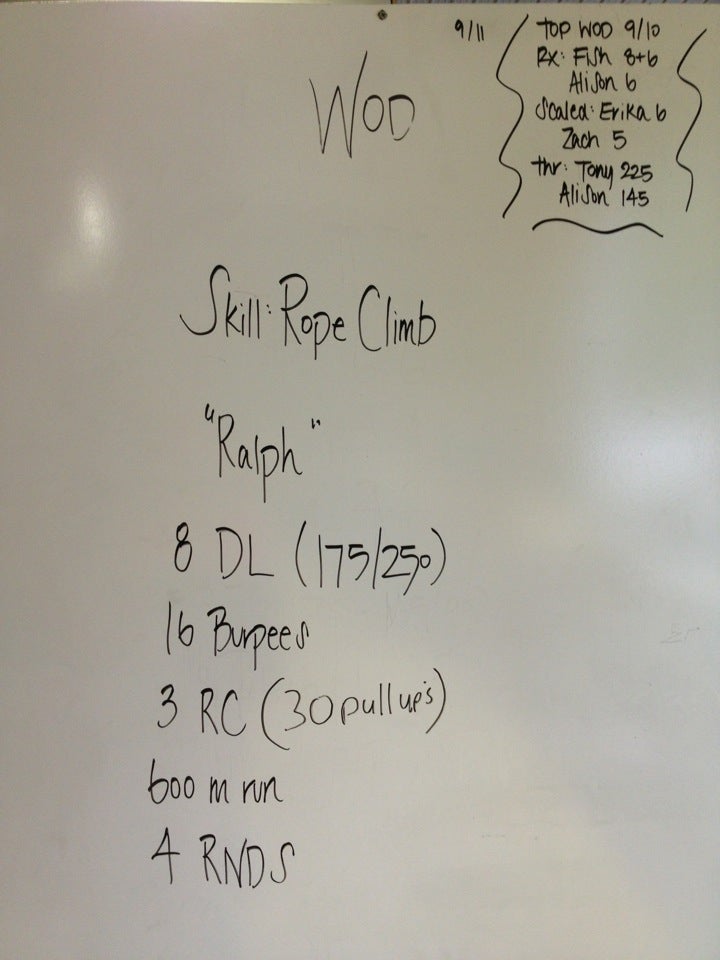 9/11
TOP WOD 9/10
Rx: Fish 8+6
Alison 6
Scaled: Erika 6
Zach 5
thr: Tony 225
Alison 145
WOD
Skill: Rope Climb
"Ralph"
8 DL (175/250)
16 Burpees
3 RC (30 pull up's)
600 m run
4 RNDS